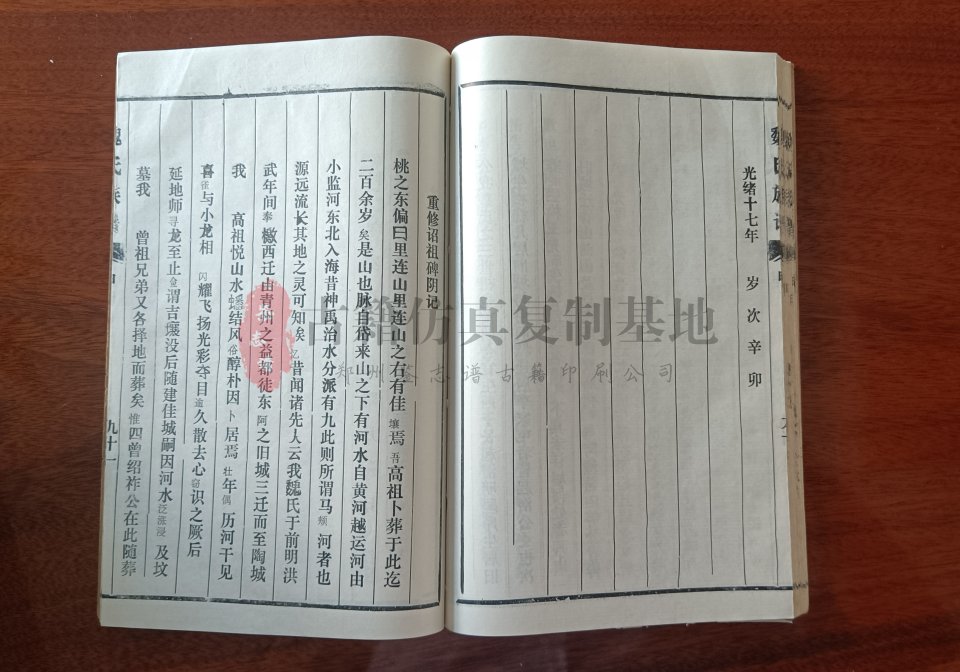 魏氏族谱
光绪十七年 岁次辛卯
重修诏祖碑阴记
桃之东偏曰里连山里连山之右有佳壤焉吾高祖卜葬于此迄
二百余岁矣是山也脉自岱来山之下有河水自黄河越运河由
小监河东北入海昔神禹治水分派有九此则所谓马颊河者也
源远流长其地之灵可知矣忆昔闻诸先人云我魏氏于前明洪
武年间奉檄西迁由青州之益都徒东阿之旧城三迁而至陶城
我 高祖悦山水蟠结风俗醇朴因卜居焉壮年偶历河干见
喜雀与小龙相闪耀飞扬光彩夺目逾久散去心窃识之厥后
延地师寻龙至止佥谓吉壤没后随建佳城嗣因河水泛涨浸及坟
墓我 曾祖兄弟又各择地而葬矣惟四曾绍祚公在此随葬
魏氏族谱
九十一
古籍仿真复制基地
郑州鉴志谱古籍印刷公司